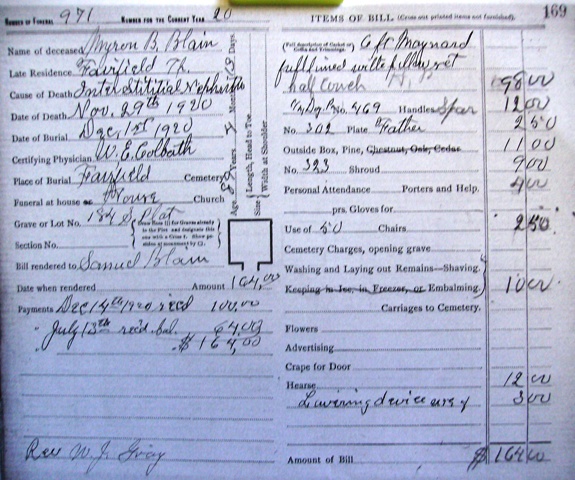 Number of Funeral 971 Number for the Current Year 20
Name of deceased Myron B. Blain
Late Residence Fairfield Th.
Cause of Death Interstitial Nephritis
Date of Death Nov. 29th 1920
Date of Burial Dec. 1st 1920
Certifying Physician W. E. Colbath
Place of Burial Fairfield Cemetery
Funeral at house or House Church
Grave or Lot No. 184 S. Plat
Section No.
Bill rendered to Samuel Blain
Date when rendered Amount 164,00
Payments Dec 14th 1920 rec'd 100,00
" July 13th rec'd bal. 64,00
$ 164,00
Rev W. J. Gray
Age Years Months Days
Size Length, Head to Toe. Width at Shoulder
ITEMS OF BILL (Cross out printed items not furnished). 169
6 ft Maynard
full lined white pillow set
half couch 98 00
No. 469 Handles 12 00
No. 302 Plate Father 2 50
Outside Box, Pine, Chestnut, Oak, Cedar 11 00
No. 323 Shroud 9 00
Personal Attendance Porters and Help. 4 00
prs. Gloves for
Use of 50 Chairs 2 50
Cemetery Charges, opening grave
Washing and Laying out Remains—Shaving.
Keeping in Ice, in Freezer, or Embalming. 10 00
Carriages to Cemetery.
Flowers
Advertising
Crape for Door
Hearse 12 00
Lowering device 3 00
Amount of Bill $ 164 00